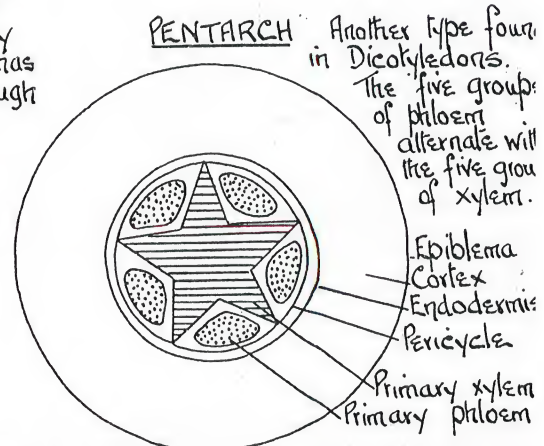 y
has
ugh
PENTARCH
Another type foun
in Dicotyledons.
The five group
of phloem
alternate wit
the five grou
of xylem.
Epiblema
Cortex
Endodermis
Pericycle
Primary xylem
Primary phloem